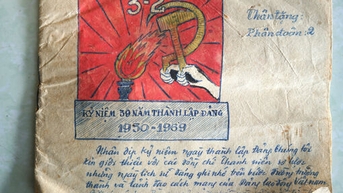 3-2
Thân tặng:
Phân đoàn: 2
KỶ NIỆM 39 NĂM THÀNH LẬP ĐẢNG
1930-1969
Nhân dịp kỷ niệm ngày thành lập Đảng chúng tôi
xin giới thiệu với các đồng chí thanh niên sơ lược
những ngày lịch sử đáng ghi nhớ trên bước đường trưởng
thành và lãnh đạo cách mạng của Đảng lao động Việt nam